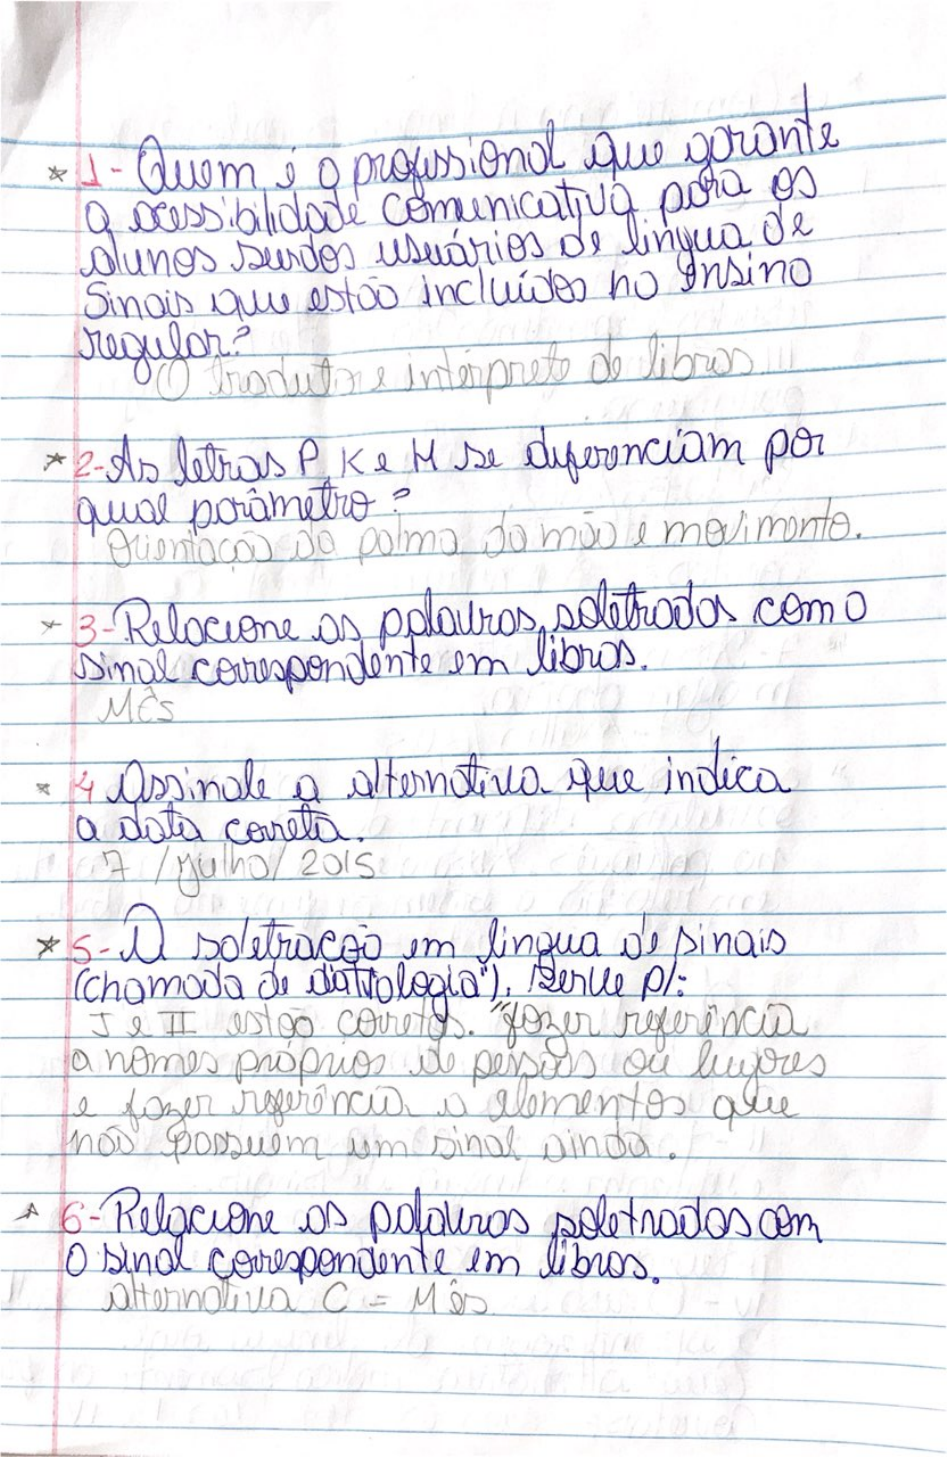 * 1- Quem é o profissional que garante
a acessibilidade comunicativa para os
alunos surdos usuários de língua de
Sinais que estão incluídos no Ensino
regular?
O tradutor e intérprete de libras
* 2- As letras P, K e M se diferenciam por
qual parâmetro?
Orientação da palma da mão e movimento.
* 3- Relacione as palavras soletradas com o
sinal correspondente em libras.
MÊS
* 4 Assinale a alternativa que indica
a data correta.
7 / Julho / 2015
* 5- A soletração em língua de sinais
(chamada de "datilologia"). Serve p/:
I e II estão corretas. "fazer referência
a nomes próprios de pessoas ou lugares
e fazer referência a elementos que
não possuem um sinal ainda.
* 6- Relacione as palavras soletradas com
o sinal correspondente em libras.
alternativa C = Mês